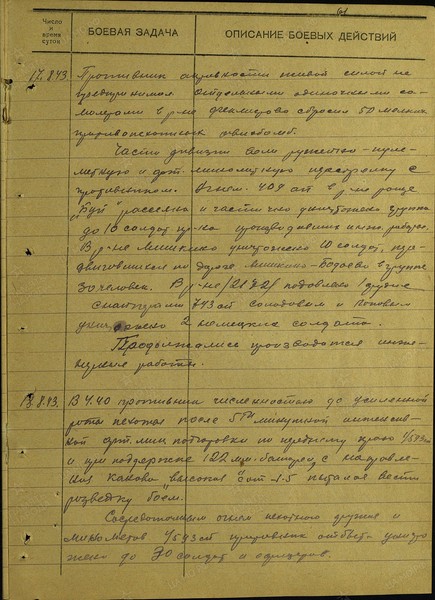 61
Число и время суток
БОЕВАЯ ЗАДАЧА
ОПИСАНИЕ БОЕВЫХ ДЕЙСТВИЙ
17.8.43. Противник активности живой силой не
предпринимал. Отдельными одиночными са-
молетами в р-не сбросил 50 мелких
противопехотных авиабомб.
Части дивизии вели ружейно-пуле-
метную и арт. минометную перестрелку с
противником. Огнем 409 ап в р-не рощи
"Бук" рассеяна и частично уничтожена группа
до 10 солдат пр-ка
В р-не Мишкино уничтожено 10 солдат, про-
двигавшихся по дороге Мишкино - в группе
30 человек. В р-не подавлено 1 орудие
Снайперами 743 сп и Поповым
уничтожено 2 немецких солдата.
Продолжались инже-
нерные работы.
18.8.43. В 4.40 противник численностью до усиленной
роты пехоты после 5ти минутной интенсив-
ной арт. мин. подготовки по переднему краю
и при поддержке 122 мм. батареи, с направле-
ния высота пытался вести
разведку боем.
Сосредоточенным огнем пехотного оружия и
минометов противник отбит. уничто-
жено до 30 солдат и офицеров.